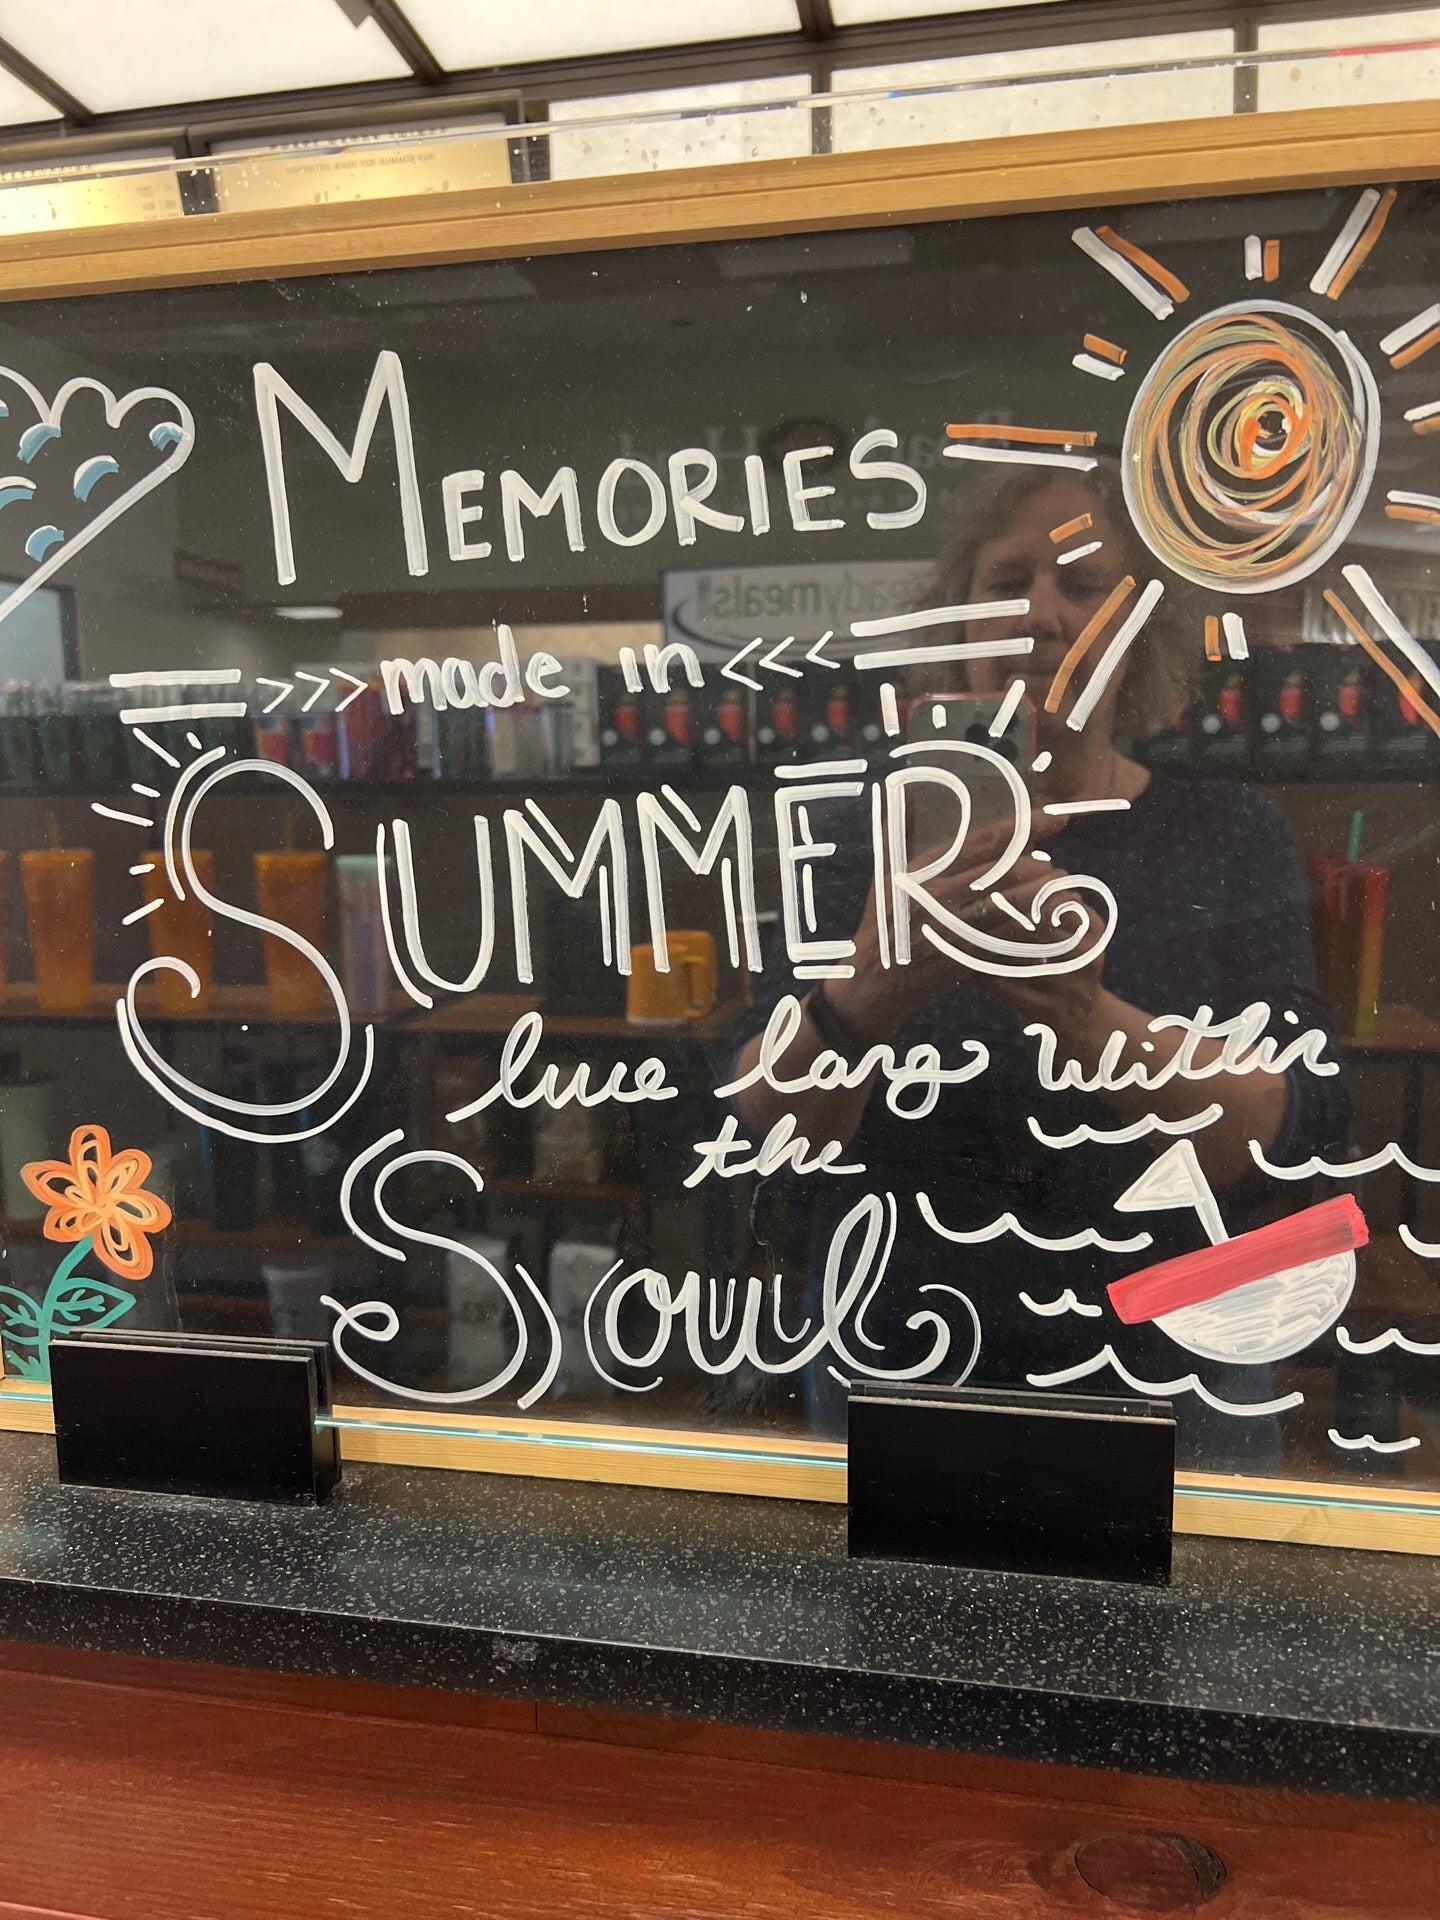 MEMORIES
>>> made in <<<
SUMMER
live long within
the
Soul
readymeals